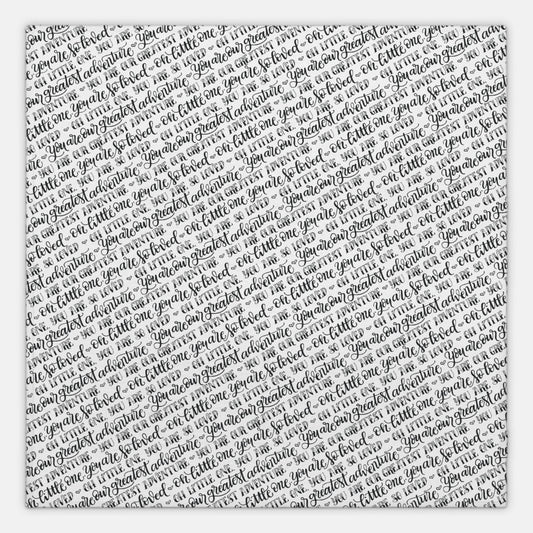 oh little one you are so loved
You are our greatest adventure
OH LITTLE ONE, YOU ARE SO LOVED
YOU ARE OUR GREATEST ADVENTURE